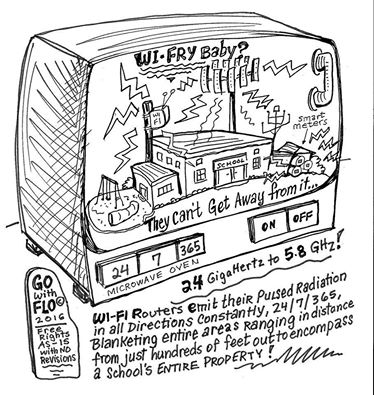 WI-FRY Baby?
WI
FI
smart
meters
SCHOOL
They Can't Get Away from it...
24 7 365
MICROWAVE OVEN
ON OFF
24 GigaHertz to 5.8 GHz!
GO
with
FLO©
2016
Free
Rights
AS-IS
with NO
Revisions
WI-FI Routers emit their Pulsed Radiation
in all Directions Constantly, 24/7/365,
Blanketing entire areas Ranging in distance
from just hundreds of feet out to encompass
a School's ENTIRE PROPERTY!